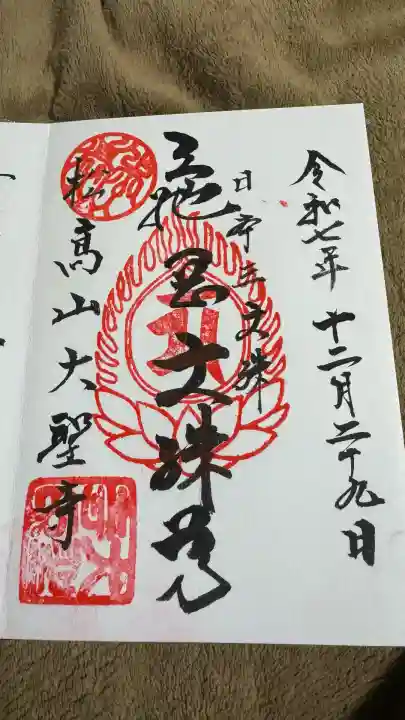 令和七年十二月二十九日
日本三文殊
亀岡文殊尊
松高山大聖寺